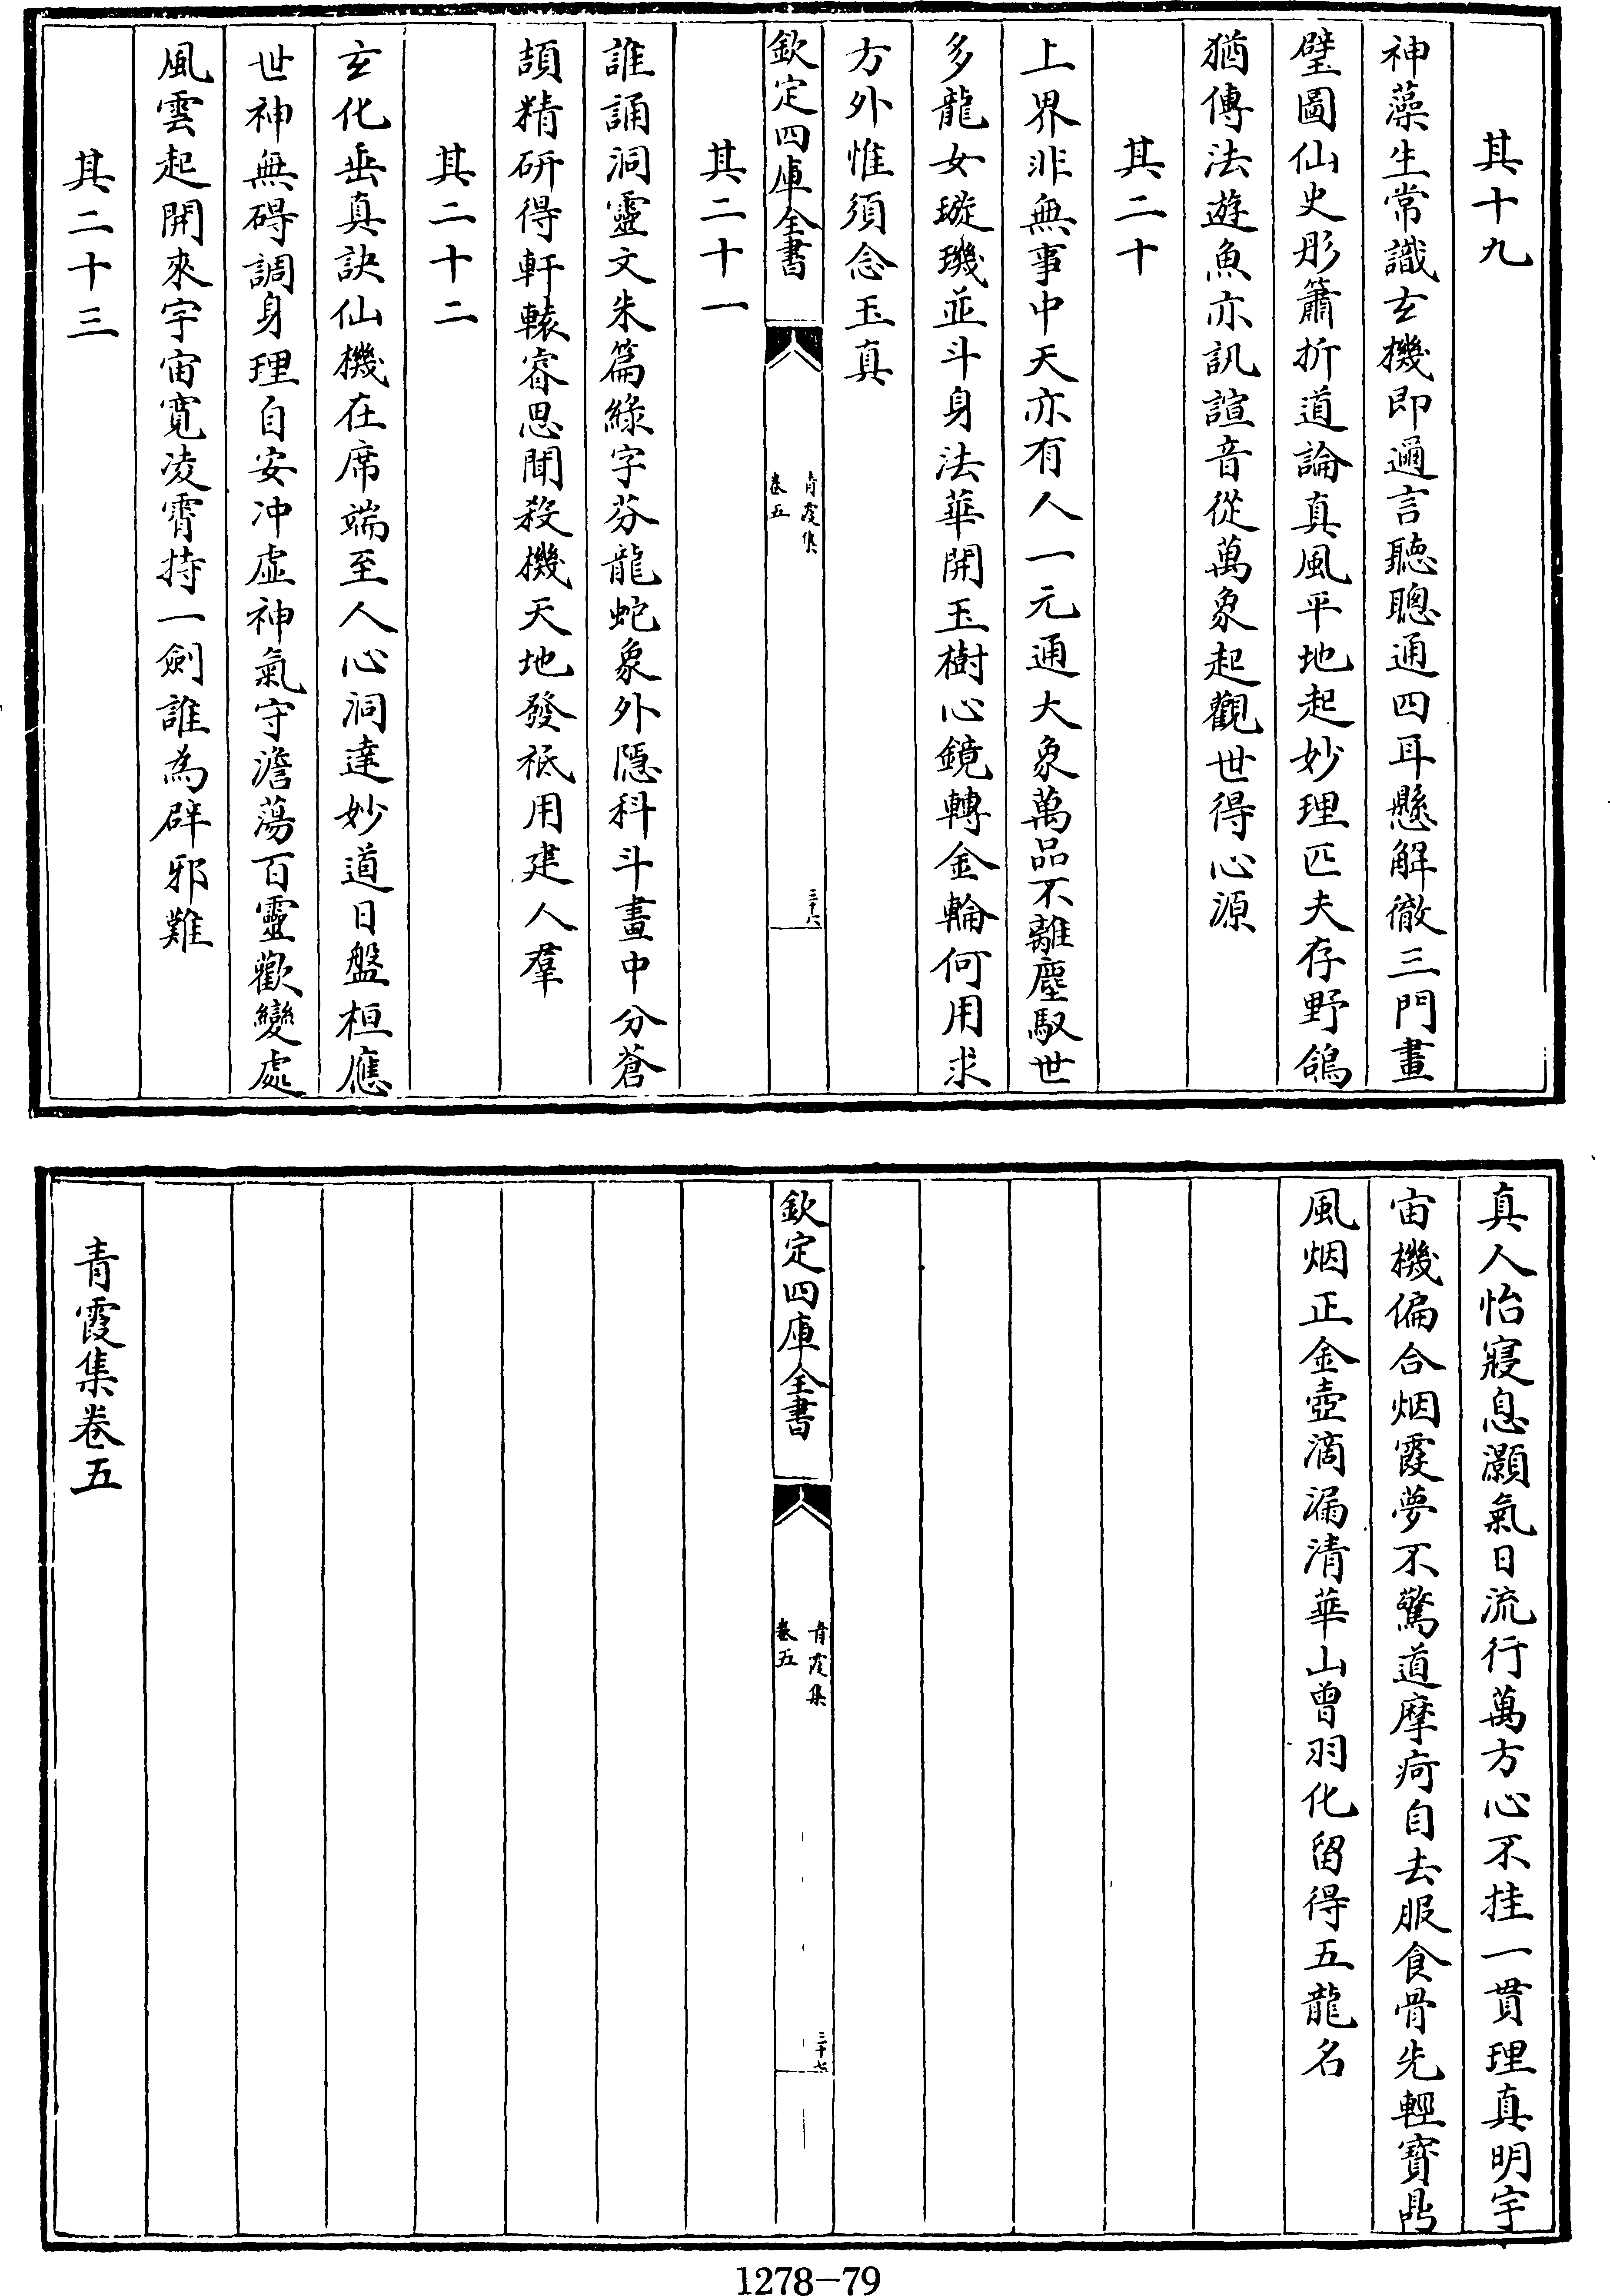 其十九
神藻生常識玄機即邇言聽聰通四耳懸解徹三門畫
壁圖仙史彤簫折道論真風平地起妙理匹夫存野鴿
猶傳法遊魚亦訊諠音從萬象起觀世得心源
其二十
上界非無事中天亦有人一元通大象萬品不離塵馭世
多龍女璇璣並斗身法華開玉樹心鏡轉金輪何用求
方外惟須念玉真
欽定四庫全書
青霞集
卷五
三十六
其二十一
誰誦洞靈文朱篇綠字芬龍蛇象外隱科斗畫中分蒼
頡精研得軒轅睿思聞殺機天地發祗用建人羣
其二十二
玄化垂真訣仙機在席端至人心洞達妙道日盤桓應
世神無碍調身理自安冲虛神氣守澹蕩百靈歡變處
風雲起開來宇宙寬凌霄持一劍誰為辟邪難
其二十三
真人怡寢息灝氣日流行萬方心不挂一貫理真明宇
宙機偏合烟霞夢不驚道摩疴自去服食骨先輕寶鼎
風烟正金壺滴漏清華山曾羽化留得五龍名
欽定四庫全書
青霞集
卷五
三十七
青霞集卷五
1278-79